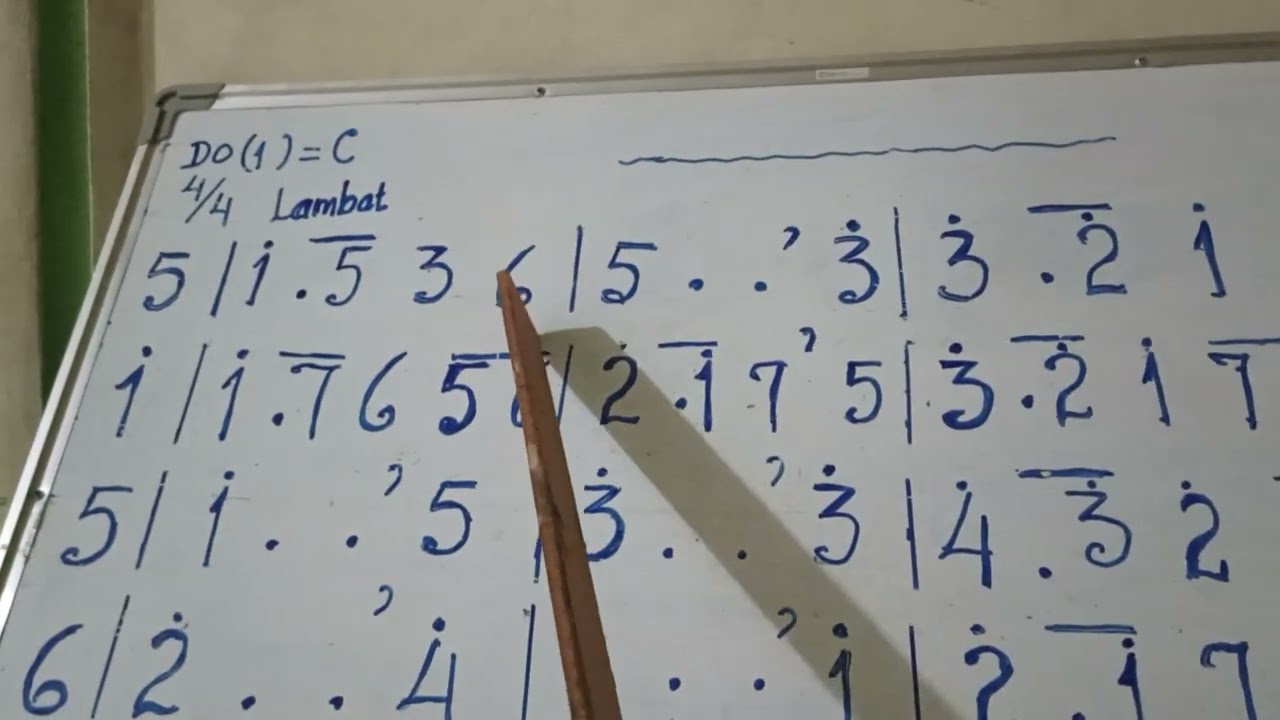 DO(1)=C
4/4 Lambat
5 | i̇ . 5̅ 3 6 | 5 . . ’ 3̇ | 3̇ . 2̅̇ 1̇
1̇ | 1̇ . 7̅ 6 5̅ | 2̇ . 1̅̇ 7 ’ 5 | 3̇ . 2̅̇ 1̇ 7̅
5 | 1̇ . . ’ 5 | 3̇ . . ’ 3̇ | 4̇ . 3̅̇ 2̇
6 | 2̇ . . ’ 4̇ | . . ’ 1̇ | 2̇ . 1̅̇ 7